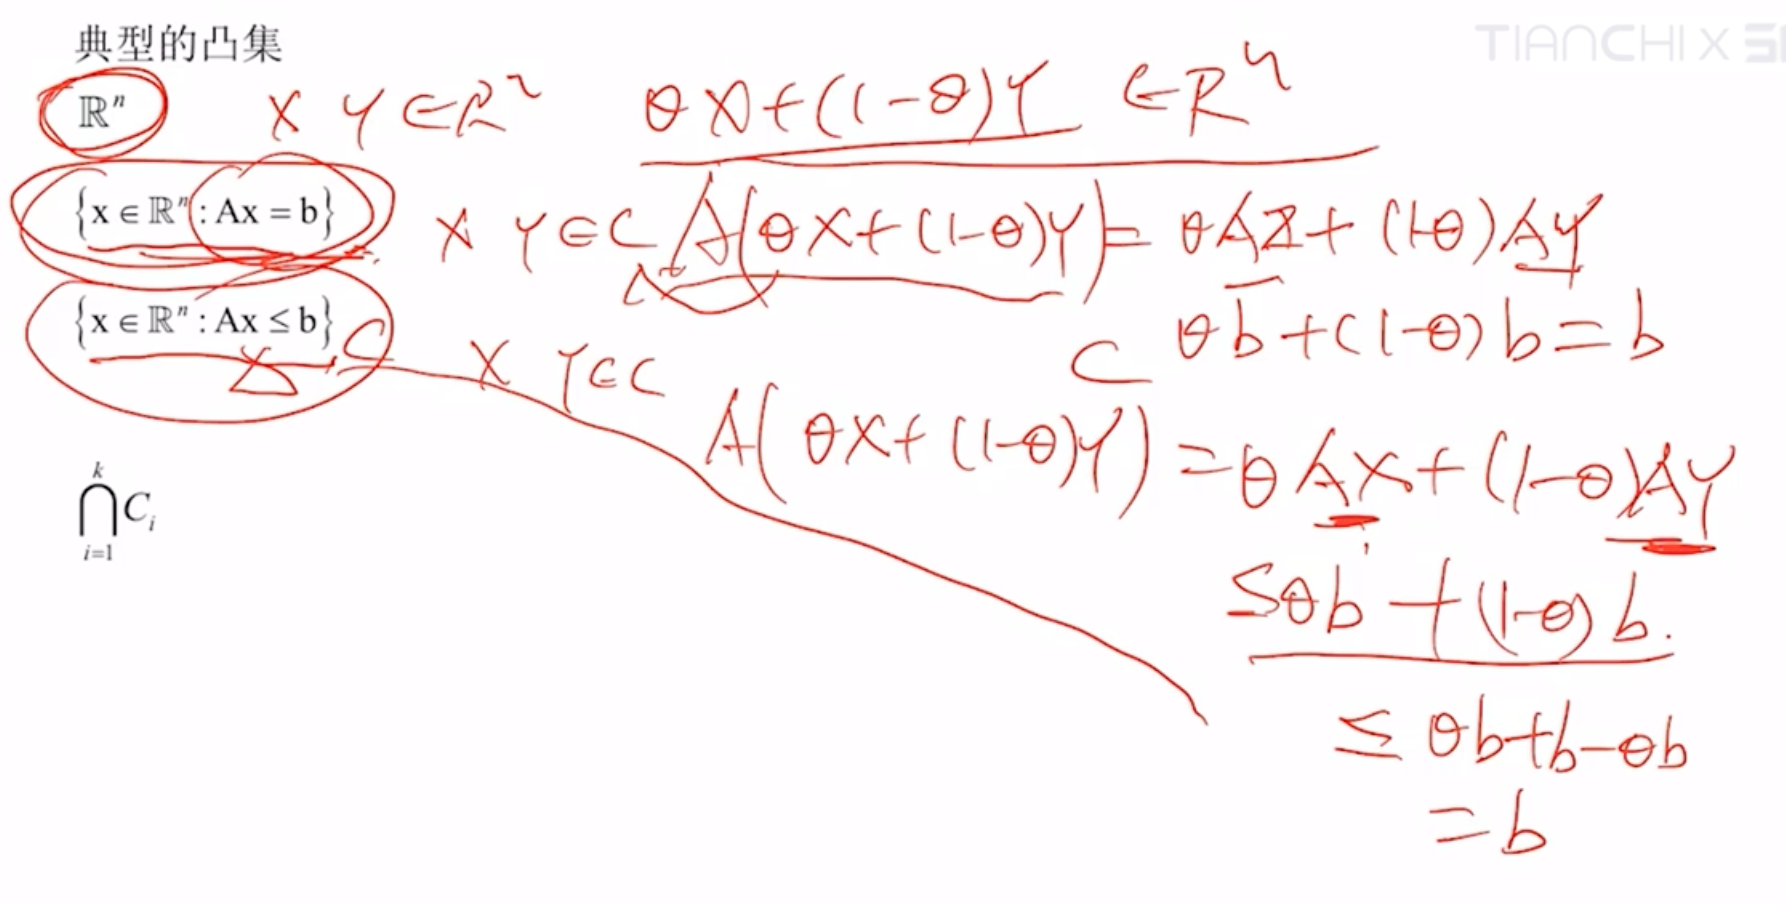 典型的凸集
TIANCHI X
ℝⁿ X Y ∈ Rⁿ θX+(1-θ)Y ∈ Rⁿ
{x ∈ ℝⁿ : Ax = b} X Y ∈ C A(θX+(1-θ)Y) = θAX+(1-θ)AY
θb+(1-θ)b=b
{x ∈ ℝⁿ : Ax ≤ b} C X Y ∈ C C
A(θX+(1-θ)Y) =θAX+(1-θ)AY
≤θb+(1-θ)b.
≤ θb+b-θb
=b
k
⋂Cᵢ
i=1